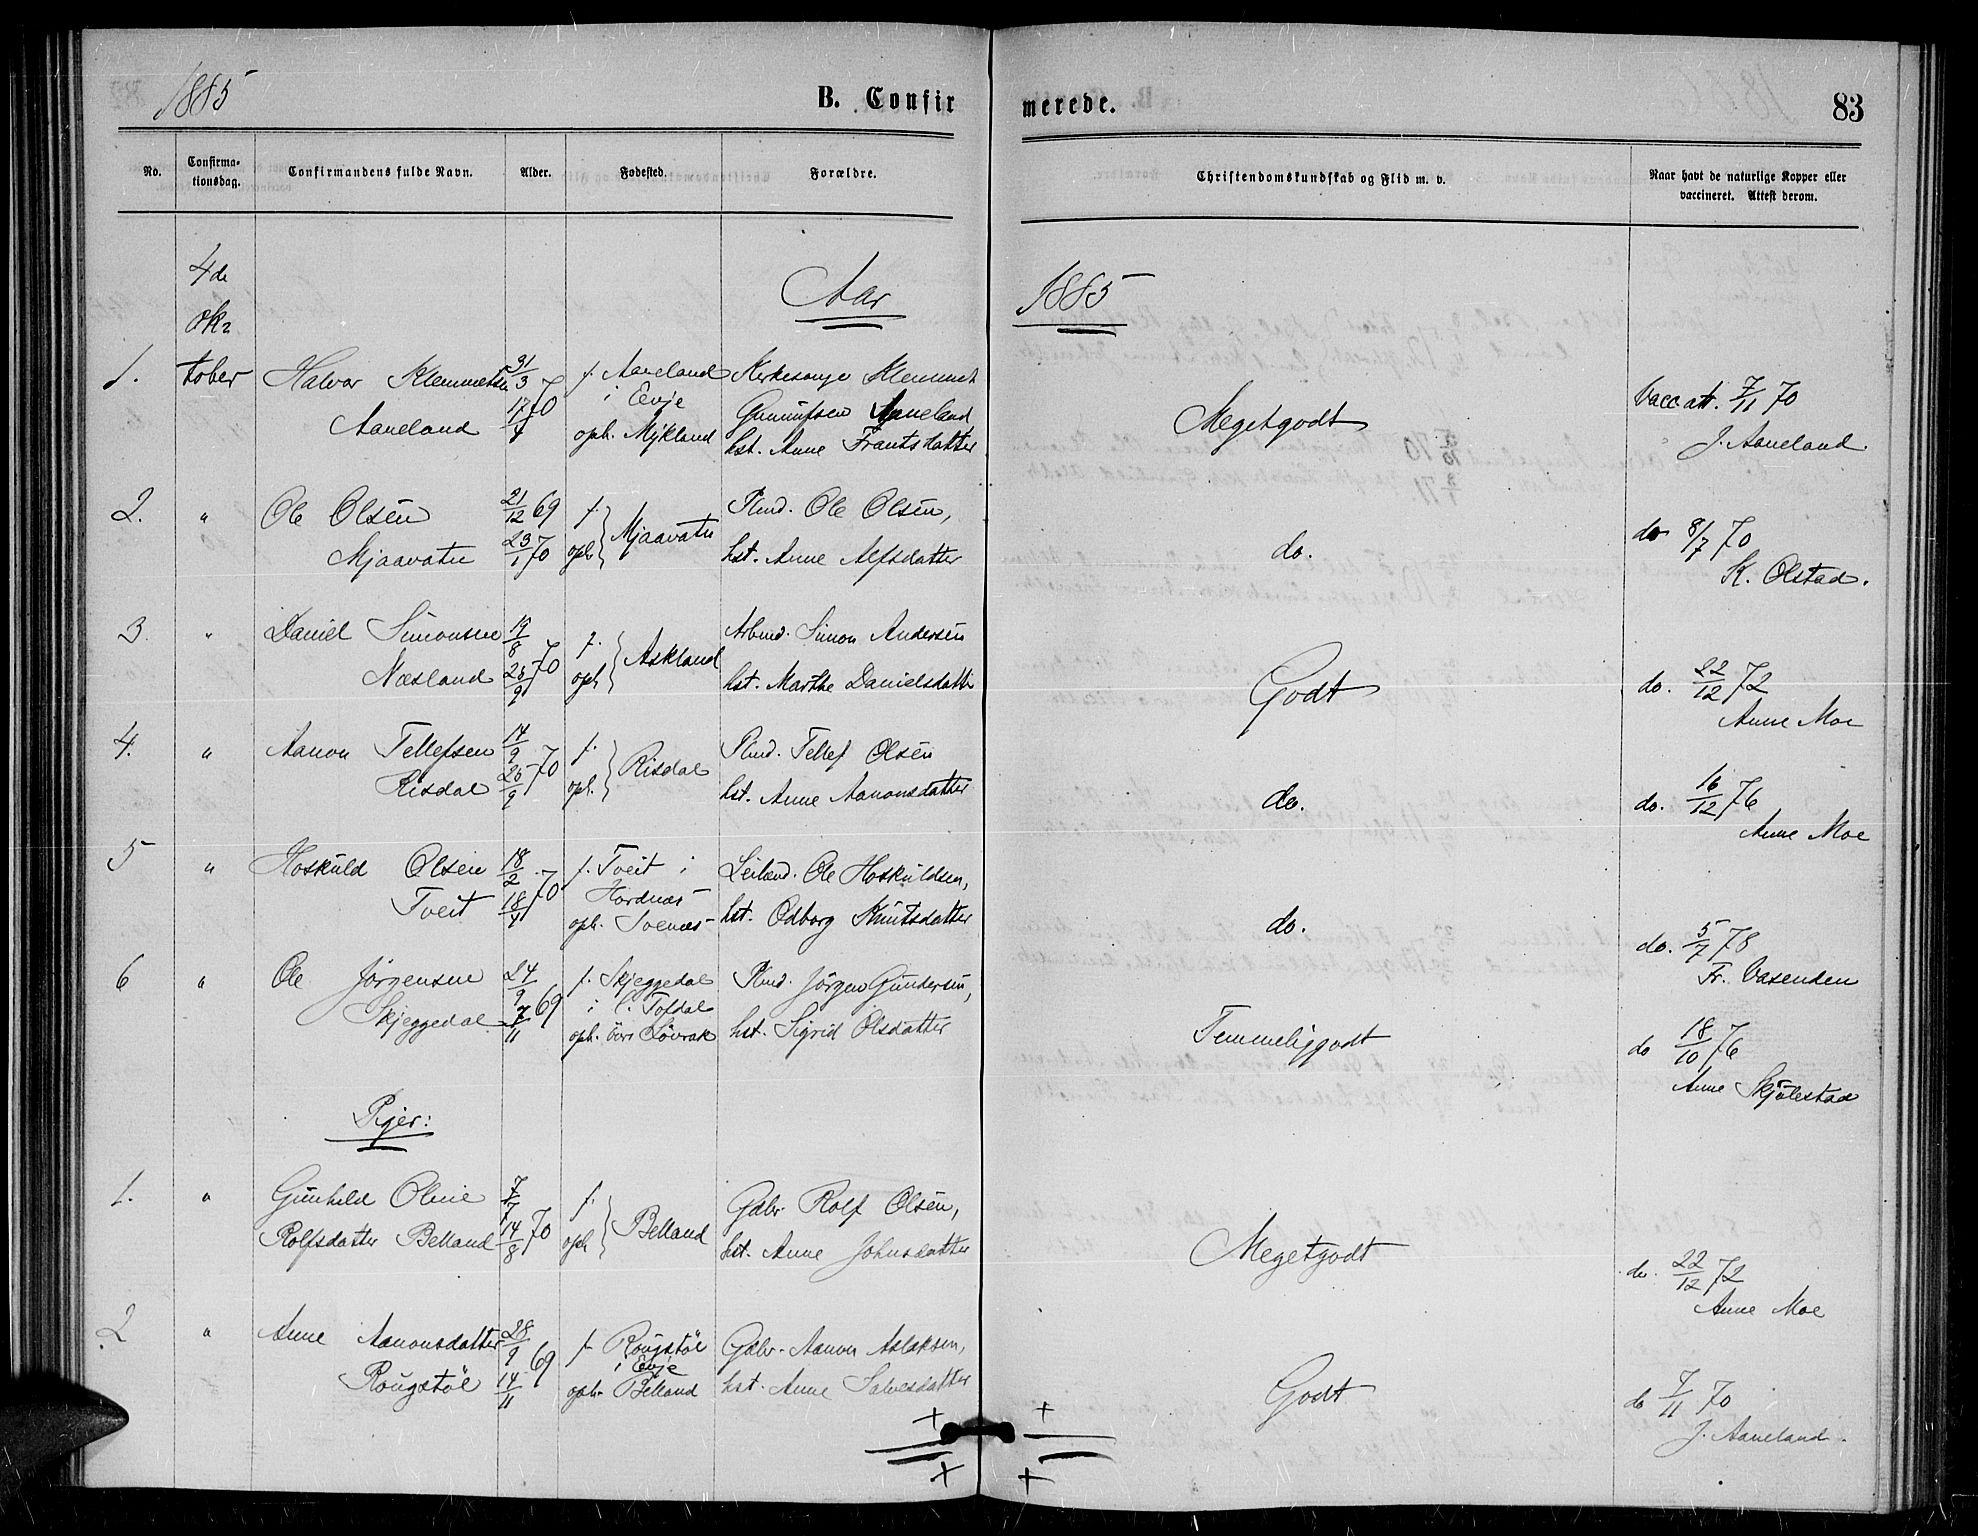 1885
B. Confir
merede.
83
No.
Confirma-
tionsdag.
Confirmandens fulde Navn.
Alder.
Fødested.
Forældre.
Christendomskundskab og Flid m. v.
Naar havt de naturlige Kopper eller
vaccineret. Attest derom.
4de
Aar
1885
tober
1.
Halvor Klemmetsen
31/3 70
f. Aaneland
Kirkesanger Klemmet
i Evje
Gunnufsen Aaneland
Aaneland
17/4
oph. Mykland
hst. Anne Frantsdatter
Megetgodt
Vacc att. 7/11 70
J. Aaneland.
2.
"
Ole Olsen
21/12 69
f.
Mjaavatn
Plmd. Ole Olsen,
Mjaavatn
23/1 70
oph
hst. Anne Alfsdatter
do.
do 8/7 70
K. Olstad.
3.
"
Daniel Simonsen
19/8 70
f.
Askland
Arbmd. Simon Andersen
Næsland
25/9
oph
hst. Marthe Danielsdatt
Godt
do. 22/12 72
Anne Moe
4.
"
Aanon Tellefsen
14/9 70
f.
Risdal
Plmd. Tellef Olsen
Risdal
25/9
oph.
hst. Anne Aanonsdatter
do.
do. 16/12 76
Anne Moe
5
"
Hoskuld Olsen
18/2 70
f. Tveit i
Leilænd. Ole Hoskuldsen,
Tveit
18/4
Hordnæs
oph. Svenæs
hst. Odborg Knutsdatter
do.
do. 5/7 78
Fr. Vasenden
6
"
Ole Jörgensen
24/9 69
f. Skjeggedal
Plmd. Jörgen Gundersen,
Skjeggedal
7/11
i Tofdal
oph. Lövrak
hst. Sigrid Olsdatter
Temmeliggodt
do 18/10 76
Anne Skjölestad
Piger:
1.
"
Gunhild Oline
7/7 70
f.
Belland
Gdbr Rolf Olsen,
Rolfsdatter Belland
14/8
oph
hst. Anne Johnsdatter
Megetgodt
do. 22/12 72
Anne Moe
2
"
Anne Aanonsdatter
28/9 69
f. Rougstöl
Gdbr. Aanon Aslaksen,
i Evje
Rougstöl
14/11
oph. Belland
hst. Anne Salvesdatter
Godt
do 7/11 70
J. Aaneland.